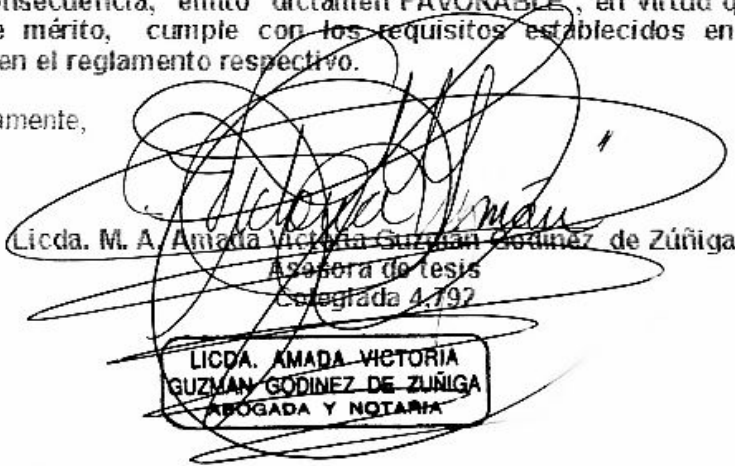 onsecuencia, emito dictamen FAVORABLE , en virtud q
e mérito, cumple con los requisitos establecidos en
en el reglamento respectivo.
amente,
Licda. M. A. Amada Victoria Guzmán Godínez de Zúñiga
Asesora de tesis
Colegiada 4,792
LICDA. AMADA VICTORIA
GUZMAN GODINEZ DE ZUÑIGA
ABOGADA Y NOTARIA